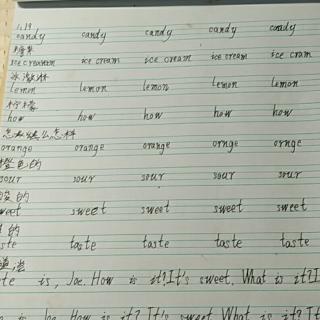 11.19
candy candy candy candy candy
糖果
icecream ice cream ice cream ice cream ice cram
冰激淋
lemon lemon lemon lemon lemon
柠檬
how how how how how
怎么样
orange orange orange ornge ornge
橙色的
sour sour sour sour sour
酸的
sweet sweet sweet sweet sweet
的
ste taste taste taste taste
味道
te is, Joe. How is it? It's sweet. What is it? I
is Joe How is it? It's sweet What is it? It